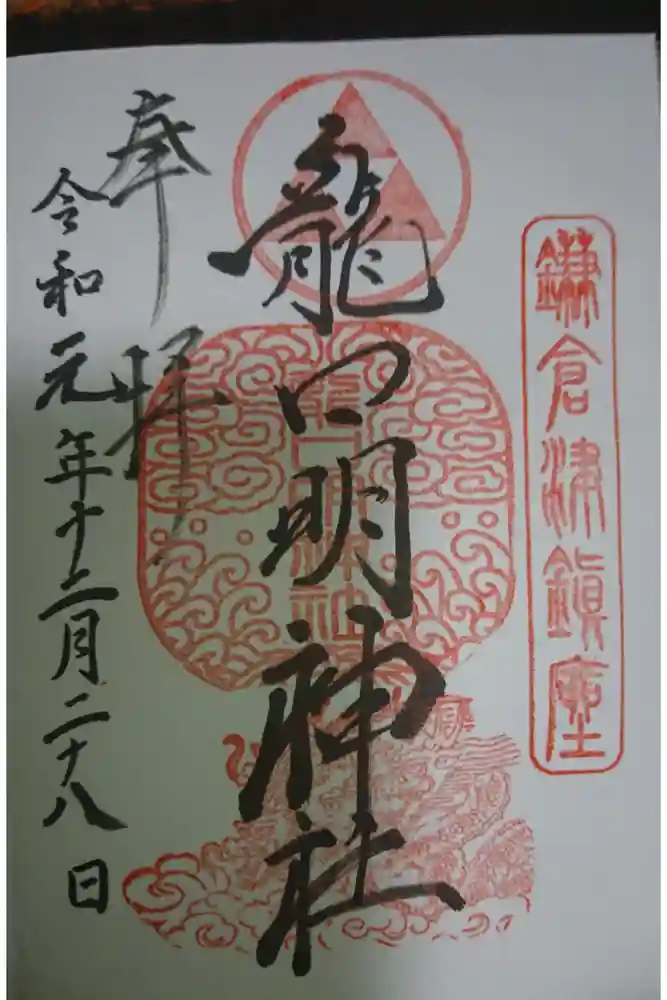 鎌倉津鎮座
龍口明神社
龍口明神社
奉拝
令和元年十二月二十八日